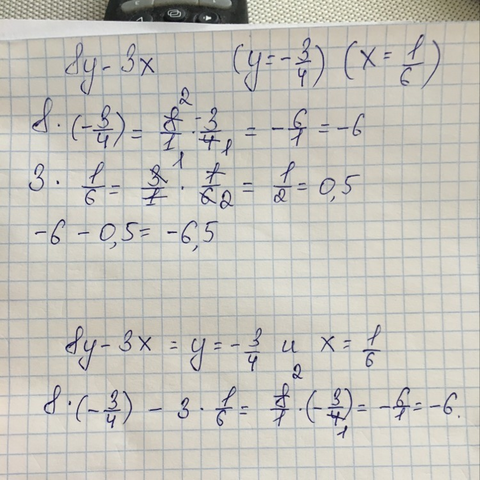 8y - 3x (y = -3/4) (x = 1/6)
8 · (-3/4) = 8/1 2 · -3/4 1 = -6/1 = -6
3 · 1/6 = 3/1 1 · 1/6 2 = 1/2 = 0,5
-6 - 0,5 = -6,5
8y - 3x = y = -3/4 и x = 1/6
8 · (-3/4) - 3 · 1/6 = 8/1 2 · (-3/4 1) = -6/1 = -6.